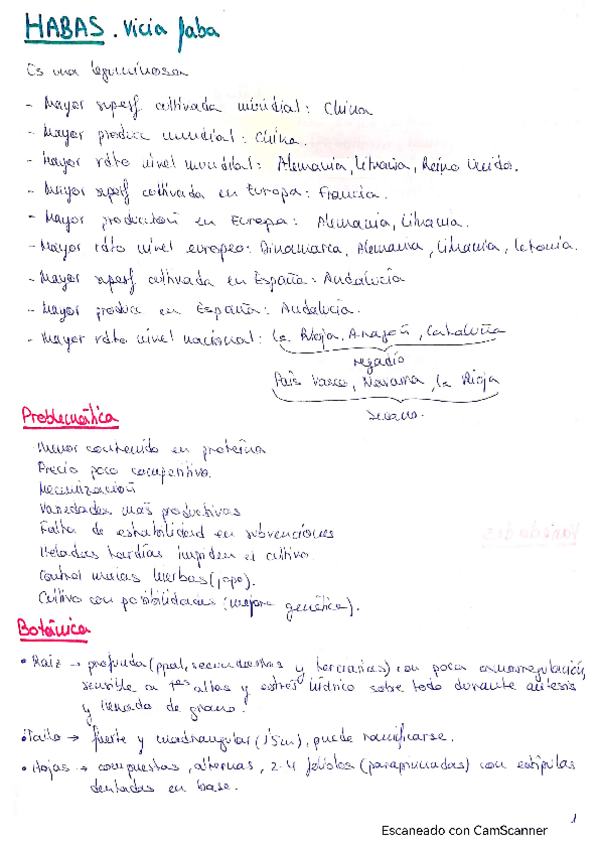 HABAS. Vicia faba
Es una leguminosa
- Mayor superf cultivada mundial: China
- Mayor produce mundial: China.
- Mayor rdto nivel mundial: Alemania, Lituania, Reino Unido.
- Mayor superf cultivada en Europa: Francia.
- Mayor producción en Europa: Alemania, Lituania.
- Mayor rdto nivel europeo: Dinamarca, Alemania, Lituania, Letonia.
- Mayor superf cultivada en España: Andalucía
- Mayor produce en España: Andalucía.
- Mayor rdto nivel nacional: la Rioja, Aragón, Cataluña
regadío
País Vasco, Navarra, la Rioja
secano.
Problemática
Menor contenido en proteína
Precio poco competitivo.
Mecanización
Variedades más productivas
Falta de estabilidad en subvenciones
Heladas tardías impiden el cultivo
Control malas hierbas (jopo).
Cultivo con posibilidades (mejora genética).
Botánica
• Raíz → profunda (ppal, secundarias y terciarias) con poca osmorregulación,
sensible a Tªs altas y estrés hídrico sobre todo durante antesis
y llenado de grano.
• Tallo → fuerte y cuadrangular (1'5m), puede ramificarse.
• Hojas → compuestas, alternas, 2-4 folíolos (paripinnadas) con estípulas
dentadas en base.
1
Escaneado con CamScanner